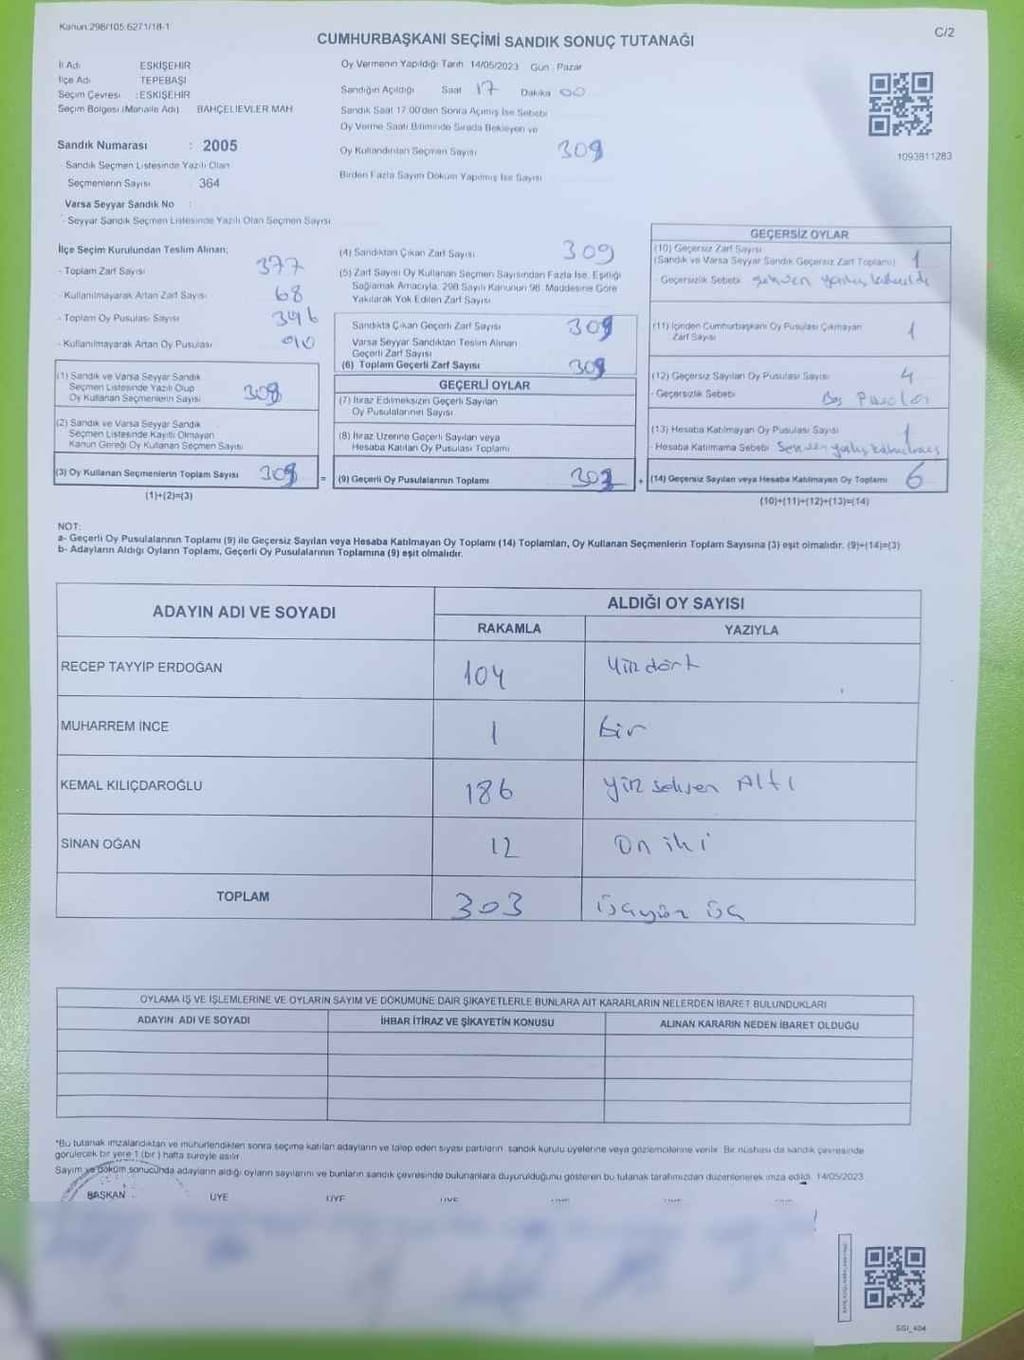 Kanun:298/105.6271/18-1
C/2
CUMHURBAŞKANI SEÇİMİ SANDIK SONUÇ TUTANAĞI
İl Adı ESKİŞEHİR
İlçe Adı TEPEBAŞI
Seçim Çevresi : ESKİŞEHİR
Seçim Bölgesi (Mahalle Adı) BAHÇELİEVLER MAH
Oy Vermenin Yapıldığı Tarih 14/05/2023 Gün : Pazar
Sandığın Açıldığı Saat 17 Dakika 00
Sandık Saat 17.00'den Sonra Açımış İse Sebebi
Oy Verme Saati Bitiminde Sırada Bekleyen ve
Oy Kullandırılan Seçmen Sayısı 309
Birden Fazla Sayım Döküm Yapılmış İse Sayısı
1093811283
Sandık Numarası : 2005
Sandık Seçmen Listesinde Yazılı Olan
Seçmenlerin Sayısı 364
Varsa Seyyar Sandık No :
Seyyar Sandık Seçmen Listesinde Yazılı Olan Seçmen Sayısı
İlçe Seçim Kurulundan Teslim Alınan;
- Toplam Zarf Sayısı 377
- Kullanılmayarak Artan Zarf Sayısı 68
- Toplam Oy Pusulası Sayısı 396
- Kullanılmayarak Artan Oy Pusulası
(1) Sandık ve Varsa Seyyar Sandık
Seçmen Listesinde Yazılı Olup
Oy Kullanan Seçmenlerin Sayısı 309
(2) Sandık ve Varsa Seyyar Sandık
Seçmen Listesinde Kayıtlı Olmayan
Kanun Gereği Oy Kullanan Seçmen Sayısı
(3) Oy Kullanan Seçmenlerin Toplam Sayısı 309 =
(1)+(2)=(3)
(4) Sandıktan Çıkan Zarf Sayısı 309
(5) Zarf Sayısı Oy Kullanan Seçmen Sayısından Fazla İse, Eşitliği
Sağlamak Amacıyla, 298 Sayılı Kanunun 98. Maddesine Göre
Yakılarak Yok Edilen Zarf Sayısı
Sandıkta Çıkan Geçerli Zarf Sayısı 309
Varsa Seyyar Sandıktan Teslim Alınan
Geçerli Zarf Sayısı
(6) Toplam Geçerli Zarf Sayısı 309
GEÇERLİ OYLAR
(7) İtiraz Edilmeksizin Geçerli Sayılan
Oy Pusulalarının Sayısı
(8) İtiraz Üzerine Geçerli Sayılan veya
Hesaba Katılan Oy Pusulası Toplamı
(9) Geçerli Oy Pusulalarının Toplamı 303 +
GEÇERSİZ OYLAR
(10) Geçersiz Zarf Sayısı
(Sandık ve Varsa Seyyar Sandık Geçersiz Zarf Toplamı) 1
Geçersizlik Sebebi
(11) İçinden Cumhurbaşkanı Oy Pusulası Çıkmayan
Zarf Sayısı 1
(12) Geçersiz Sayılan Oy Pusulası Sayısı 4
- Geçersizlik Sebebi Boş Pusula
(13) Hesaba Katılmayan Oy Pusulası Sayısı 1
- Hesaba Katılmama Sebebi
(14) Geçersiz Sayılan veya Hesaba Katılmayan Oy Toplamı 6
(10)+(11)+(12)+(13)=(14)
NOT:
a- Geçerli Oy Pusulalarının Toplamı (9) ile Geçersiz Sayılan veya Hesaba Katılmayan Oy Toplamı (14) Toplamları, Oy Kullanan Seçmenlerin Toplam Sayısına (3) eşit olmalıdır. (9)+(14)=(3)
b- Adayların Aldığı Oyların Toplamı, Geçerli Oy Pusulalarının Toplamına (9) eşit olmalıdır.
ADAYIN ADI VE SOYADI
ALDIĞI OY SAYISI
RAKAMLA YAZIYLA
RECEP TAYYİP ERDOĞAN 104 Yüz dört
MUHARREM İNCE 1 bir
KEMAL KILIÇDAROĞLU 186 yüz seksen Altı
SİNAN OĞAN 12 On iki
TOPLAM 303 üçyüz üç
OYLAMA İŞ VE İŞLEMLERİNE VE OYLARIN SAYIM VE DÖKÜMÜNE DAİR ŞİKAYETLERLE BUNLARA AİT KARARLARIN NELERDEN İBARET BULUNDUKLARI
ADAYIN ADI VE SOYADI İHBAR İTİRAZ VE ŞİKAYETİN KONUSU ALINAN KARARIN NEDEN İBARET OLDUĞU
*Bu tutanak imzalandıktan ve mühürlendikten sonra seçime katılan adayların ve talep eden siyasi partilerin sandık kurulu üyelerine veya gözlemcilerine verilir. Bir nüshası da sandık çevresinde
görülecek bir yere 1 (bir) hafta süreyle asılır
Sayım ve döküm sonucunda adayların aldığı oyların sayılarını ve bunların sandık çevresinde bulunanlara duyurulduğunu gösteren bu tutanak tarafımızdan düzenlenerek imza edildi. 14/05/2023
BAŞKAN ÜYE ÜYE ÜYE